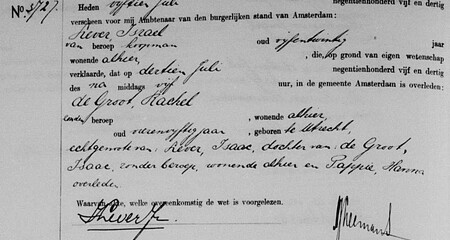 No. 5/27.
Heden vijftien Juli negentienhonderd vijf en dertig
verscheen voor mij Ambtenaar van den burgerlijken stand van Amsterdam:
Kever Israel
van beroep koopman oud vijfentwintig jaar
wonende alhier, die, op grond van eigen wetenschap
verklaarde, dat op dertien Juli negentienhonderd vijf en dertig
des na middags vijf uur, in de gemeente Amsterdam is overleden:
de Groot, Rachel
zonder beroep , wonende alhier,
oud vierenvijftig jaar, geboren te Utrecht,
echtgenoote van: Kever, Isaac, dochter van: de Groot,
Isaac, zonder beroep, wonende alhier en Pappie, Hanna
overleden.
Waarvan akte, welke overeenkomstig de wet is voorgelezen.
IKever Jr